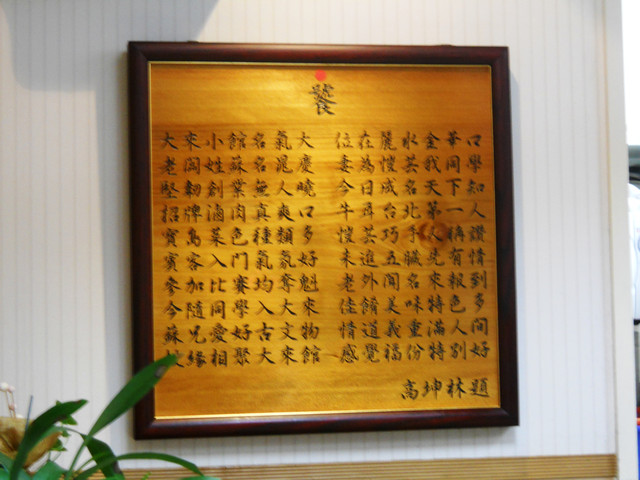 饕
大來小館名氣大 位在麗水金華口
老闆姓蘇名混慶 妻為愷芸我同學
堅韌創業無人曉 今日成名天下知
招牌滷肉真爽口 牛耳台北第一人
寶島菜色種類多 愷芸巧手稱讚
賓客入門氣氛好 未進五臟先有情
參加比賽均奪魁 老外聞名來報到
今隨同學入大來 佳餚美味特色多
蘇兄愛好古文物 情道義重滿人間
緣相聚大來館 感覺福份特別好
高坤林題